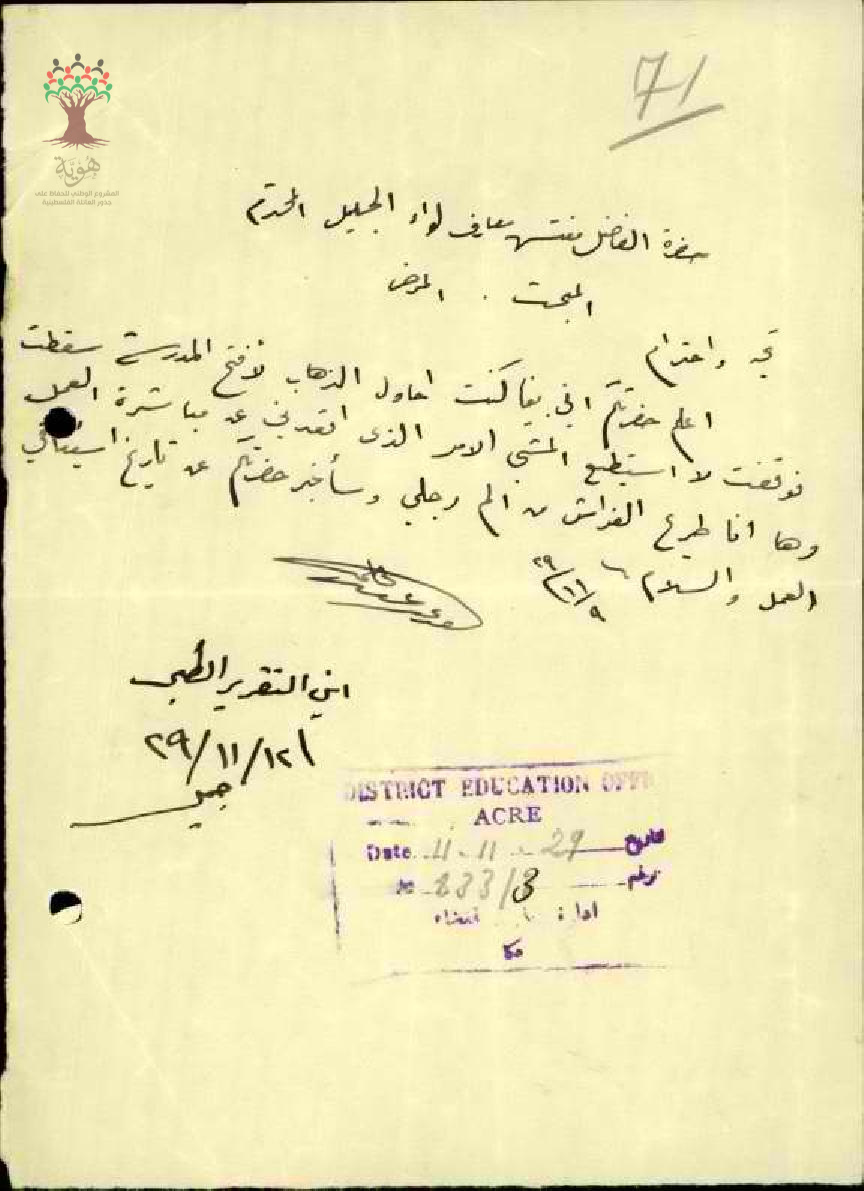 71
هُوِيَّة
المشروع الوطني للحفاظ على
جذور العائلة الفلسطينية
حضرة الفاضل مفتش معارف لواء الجليل المحترم
المبحث . المرض
تحية واحترام
اعلم حضرتكم اني بينما كنت احاول الذهاب لأفتح المدرسة سقطت
فوقعت لا استطيع المشي الامر الذي اقعدني عن مباشرة العمل
وها انا طريح الفراش من الم رجلي وسأخبر حضرتكم عن تاريخ استئنافي
العمل والسلام
٢٩/١١/٩
اين التقرير الطبي
٢٩/١١/١٢
DISTRICT EDUCATION OFF
ACRE
Date 11-11-29 تاريخ
No 233/3 رقم
ادارة قضاء
عكا